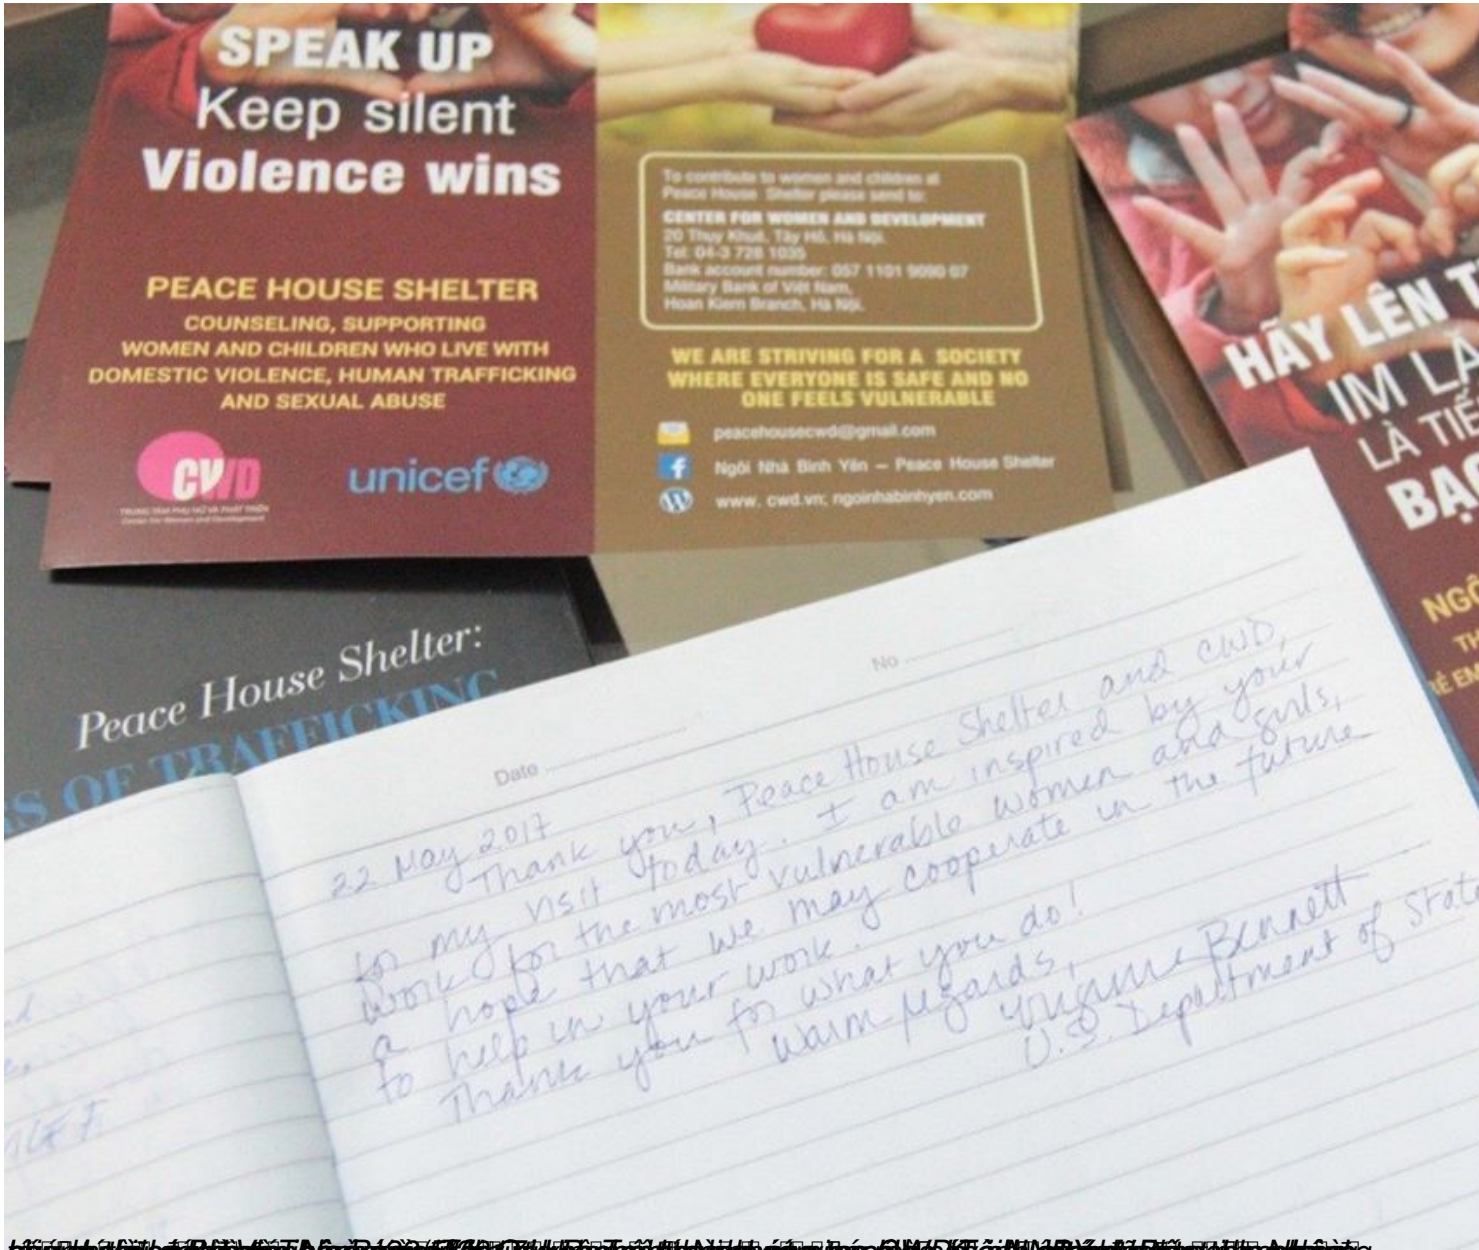 SPEAK UP
Keep silent
Violence wins
PEACE HOUSE SHELTER
COUNSELING, SUPPORTING
WOMEN AND CHILDREN WHO LIVE WITH
DOMESTIC VIOLENCE, HUMAN TRAFFICKING
AND SEXUAL ABUSE
CWD
TRUNG TÂM PHỤ NỮ VÀ PHÁT TRIỂN
Center For Women and Development
unicef
To contribute to women and children at
Peace House Shelter please send to:
CENTER FOR WOMEN AND DEVELOPMENT
20 Thụy Khuê, Tây Hồ, Hà Nội.
Tel: 04-3 728 1035
Bank account number: 057 1101 9090 07
Military Bank of Việt Nam,
Hoan Kiem Branch, Hà Nội.
WE ARE STRIVING FOR A SOCIETY
WHERE EVERYONE IS SAFE AND NO
ONE FEELS VULNERABLE
peacehousecwd@gmail.com
Ngôi Nhà Bình Yên – Peace House Shelter
www. cwd.vn; ngoinhabinhyen.com
HÃY LÊN T
IM LẶ
LÀ TIẾ
BẠO
NGÔ
TH
RẺ EM
Peace House Shelter:
S OF TRAFFICKING
Date
No
22 May 2017
Thank you, Peace House Shelter and CWD,
for my visit today. I am inspired by your
work for the most vulnerable women and girls,
a hope that we may cooperate in the future
to help in your work.
Thank you for what you do!
Warm regards,
Virginia Bennett
U.S. Department of State